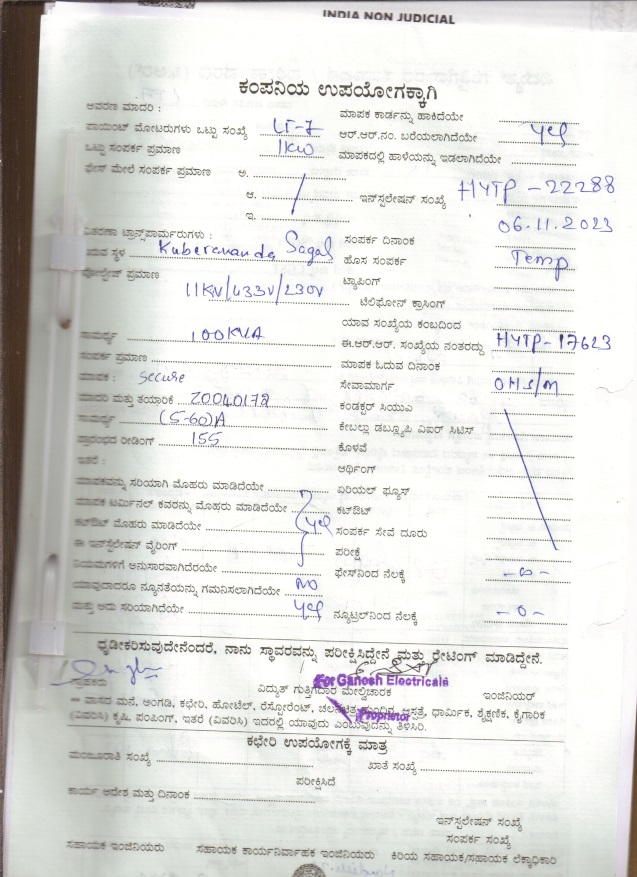 INDIA NON JUDICIAL
ಕಂಪನಿಯ ಉಪಯೋಗಕ್ಕಾಗಿ
ಆವರಣ ಮಾದರಿ :
ಮಾಪಕ ಕಾರ್ಡನ್ನು ಹಾಕಿದೆಯೇ
ಪಾಯಿಂಟ್ ಮೋಟರುಗಳು ಒಟ್ಟು ಸಂಖ್ಯೆ LT-7 ಆರ್.ಆರ್.ನಂ. ಬರೆಯಲಾಗಿದೆಯೇ yes
ಒಟ್ಟು ಸಂಪರ್ಕ ಪ್ರಮಾಣ 1KW ಮಾಪಕದಲ್ಲಿ ಹಾಳೆಯನ್ನು ಇಡಲಾಗಿದೆಯೇ
ಫೇಸ್ ಮೇಲೆ ಸಂಪರ್ಕ ಪ್ರಮಾಣ ಅ.
ಆ. ಇನ್‌ಸ್ಟಲೇಷನ್ ಸಂಖ್ಯೆ HYTP-22288
ಇ. 06.11.2023
ವಿತರಣಾ ಟ್ರಾನ್ಸ್‌ಫಾರ್ಮರುಗಳು : ಸಂಪರ್ಕ ದಿನಾಂಕ
ಇರುವ ಸ್ಥಳ Kuberananda Sagal ಹೊಸ ಸಂಪರ್ಕ Temp
ವೋಲ್ಟೇಜ್ ಪ್ರಮಾಣ 11KV/433V/230V ಟ್ಯಾಪಿಂಗ್
ಟೆಲಿಫೋನ್ ಕ್ರಾಸಿಂಗ್
ಯಾವ ಸಂಖ್ಯೆಯ ಕಂಬದಿಂದ
ಸಾಮರ್ಥ್ಯ 100KVA ಈ.ಆರ್.ಆರ್. ಸಂಖ್ಯೆಯ ನಂತರದ್ದು HYTP-17623
ಸಂಪರ್ಕ ಪ್ರಮಾಣ ಮಾಪಕ ಓದುವ ದಿನಾಂಕ
ಮಾಪಕ : Secure ಸೇವಾಮಾರ್ಗ OHS/M
ಮಾದರಿ ಮತ್ತು ತಯಾರಿಕೆ Z0040178 ಕಂಡಕ್ಟರ್ ಸಿಯುಎ
ಸಾಮರ್ಥ್ಯ (5-60)A ಕೇಬಲ್ಲು ಡಬ್ಲ್ಯೂಪಿ ವಿಐರ್ ಸಿಟಿಸ್
ಪ್ರಾರಂಭದ ರೀಡಿಂಗ್ 155 ಕೊಳವೆ
ಇತರೆ : ಆರ್ಥಿಂಗ್
ಮಾಪಕವನ್ನು ಸರಿಯಾಗಿ ಮೊಹರು ಮಾಡಿದೆಯೇ ಏರಿಯಲ್ ಫ್ಯೂಸ್
ಮಾಪಕ ಟರ್ಮಿನಲ್ ಕವರನ್ನು ಮೊಹರು ಮಾಡಿದೆಯೇ ಕಟ್‌ಔಟ್
ಕಟ್‌ಔಟ್ ಮೊಹರು ಮಾಡಿದೆಯೇ yes ಸಂಪರ್ಕ ಸೇವೆ ದೂರು
ಈ ಇನ್‌ಸ್ಟಲೇಷನ್ ವೈರಿಂಗ್ ಪರೀಕ್ಷೆ
ನಿಯಮಗಳಿಗೆ ಅನುಸಾರವಾಗಿದೆರಯೇ ಫೇಸ್‌ನಿಂದ ನೆಲಕ್ಕೆ -∞-
ಯಾವುದಾದರೂ ನ್ಯೂನತೆಯನ್ನು ಗಮನಿಸಲಾಗಿದೆಯೇ NO
ಮತ್ತು ಅದು ಸರಿಯಾಗಿದೆಯೇ yes ನ್ಯೂಟ್ರಲ್‌ನಿಂದ ನೆಲಕ್ಕೆ -0-
ಧೃಡೀಕರಿಸುವುದೇನೆಂದರೆ, ನಾನು ಸ್ಥಾವರವನ್ನು ಪರೀಕ್ಷಿಸಿದ್ದೇನೆ ಮತ್ತು ರೇಟಿಂಗ್ ಮಾಡಿದ್ದೇನೆ.
For Ganesh Electricals
ಗ್ರಾಹಕರು ವಿದ್ಯುತ್ ಗುತ್ತಿಗೆದಾರ ಮೇಲ್ವಿಚಾರಕ ಇಂಜಿನಿಯರ್
** ವಾಸದ ಮನೆ, ಅಂಗಡಿ, ಕಛೇರಿ, ಹೋಟೆಲ್, ರೆಸ್ಟೋರೆಂಟ್, ಚಲನಚಿತ್ರ ಮಂದಿರ, ಆಸ್ಪತ್ರೆ, ಧಾರ್ಮಿಕ, ಶೈಕ್ಷಣಿಕ, ಕೈಗಾರಿಕ
(ವಿವರಿಸಿ) ಕೃಷಿ, ಪಂಪಿಂಗ್, ಇತರೆ (ವಿವರಿಸಿ) ಇದರಲ್ಲಿ ಯಾವುದು ಎಂಬುವುದನ್ನು ತಿಳಿಸಿರಿ.
Proprietor
ಕಛೇರಿ ಉಪಯೋಗಕ್ಕೆ ಮಾತ್ರ
ಮಂಜೂರಾತಿ ಸಂಖ್ಯೆ ಖಾತೆ ಸಂಖ್ಯೆ
ಪರೀಕ್ಷಿಸಿದೆ
ಕಾರ್ಯ ಆದೇಶ ಮತ್ತು ದಿನಾಂಕ
ಇನ್‌ಸ್ಟಲೇಷನ್ ಸಂಖ್ಯೆ
ಸಂಪರ್ಕ ಸಂಖ್ಯೆ
ಸಹಾಯಕ ಇಂಜಿನಿಯರು ಸಹಾಯಕ ಕಾರ್ಯನಿರ್ವಾಹಕ ಇಂಜಿನಿಯರು ಕಿರಿಯ ಸಹಾಯಕ/ಸಹಾಯಕ ಲೆಕ್ಕಾಧಿಕಾರಿ